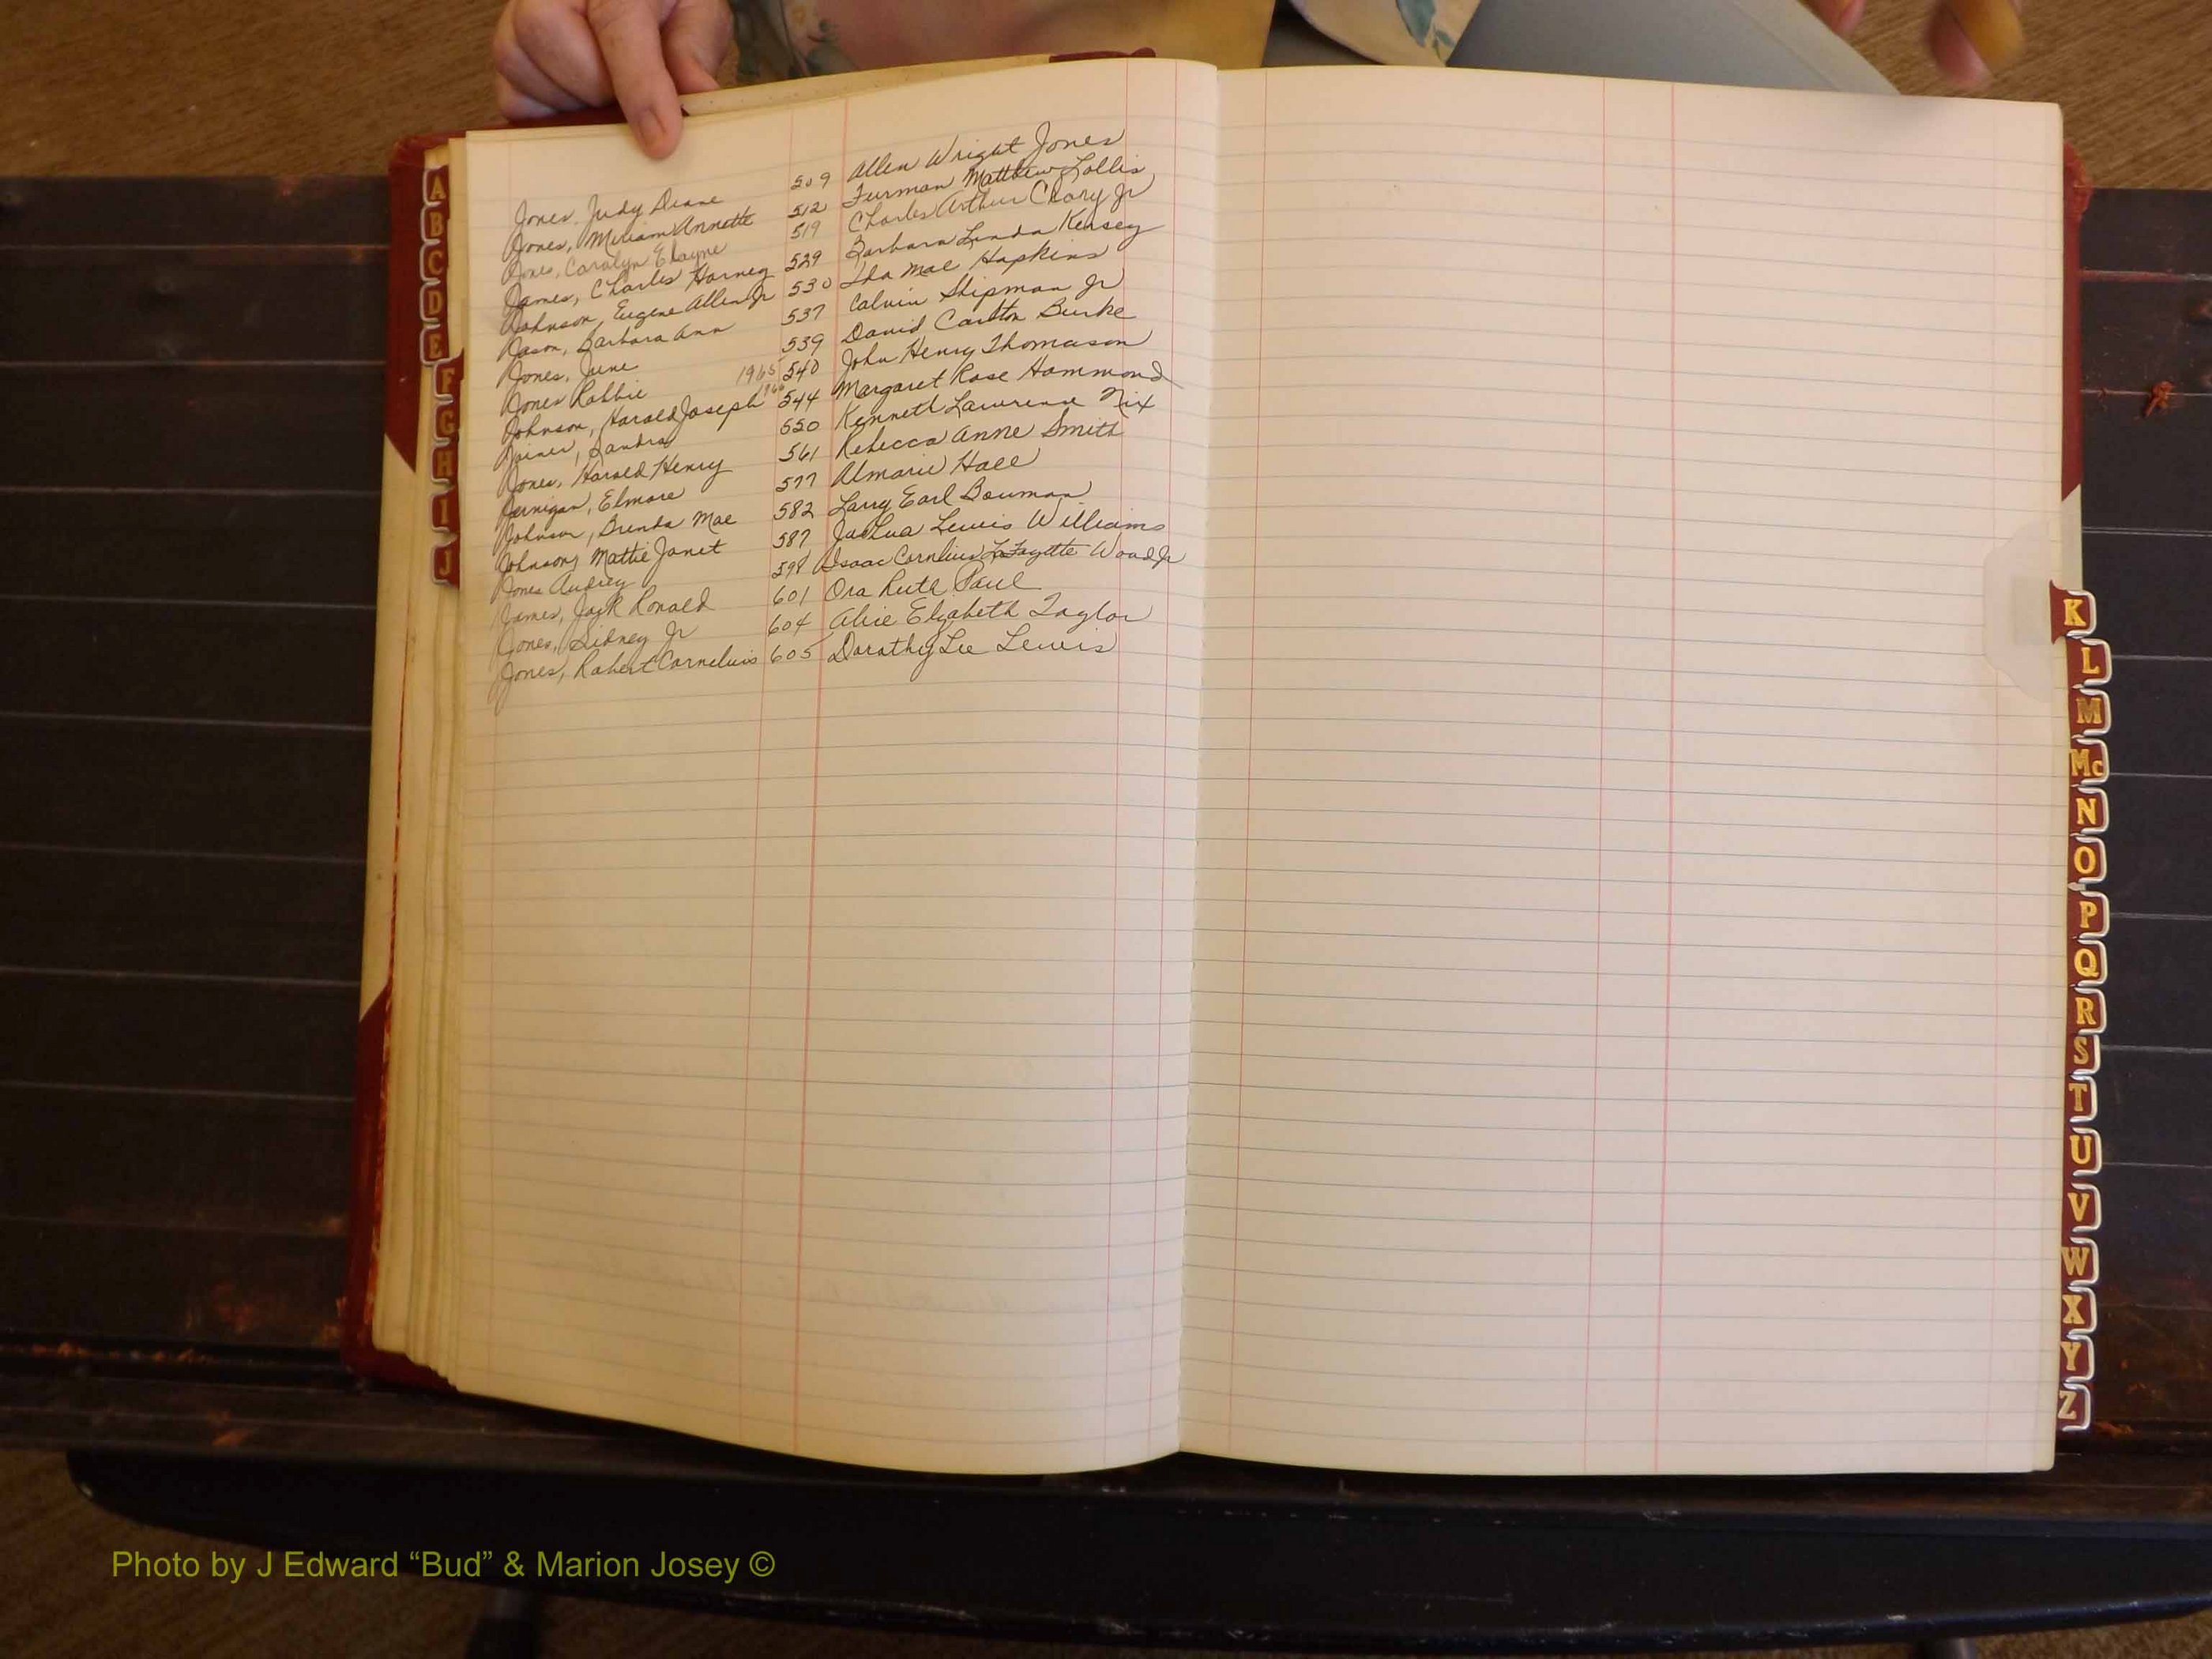 Jones, Judy Diane 509 Allen Wright Jones
Jones, Miriam Annette 512 Furman Matthew Lollis
Jones, Carolyn Elayne 519 Charles Arthur Chary Jr
James, Charles Harney 529 Barbara Linda Kersey
Johnson, Eugene Allen Jr 530 Ida Mae Hopkins
Jason, Barbara Ann 537 Calvin Shipman Jr
Jones, June 539 David Carlton Burke
Jones Robbie 1965 540 John Henry Thomason
Johnson, Harold Joseph 1966 544 Margaret Rose Hammond
Joiner, Sandra 550 Kenneth Lawrense Nix
Jones, Harold Henry 561 Rebecca Anne Smith
Jernigan, Elmore 577 Almarie Hall
Johnson, Brenda Mae 582 Larry Earl Bowman
Johnson, Mattie Janet 587 Joshua Lewis Williams
Jones Audrey 598 Isaac Cornelius LaFayette Wood Jr
James, Jack Ronald 601 Ora Ruth Paul
Jones, Sidney Jr 604 Alice Elizabeth Taylor
Jones, Robert Cornelius 605 Dorothy Lee Lewis
A
B
C
D
E
F
G
H
I
J
K
L
M
Mc
N
O
P
Q
R
S
T
U
V
W
X
Y
Z
Photo by J Edward “Bud” & Marion Josey ©